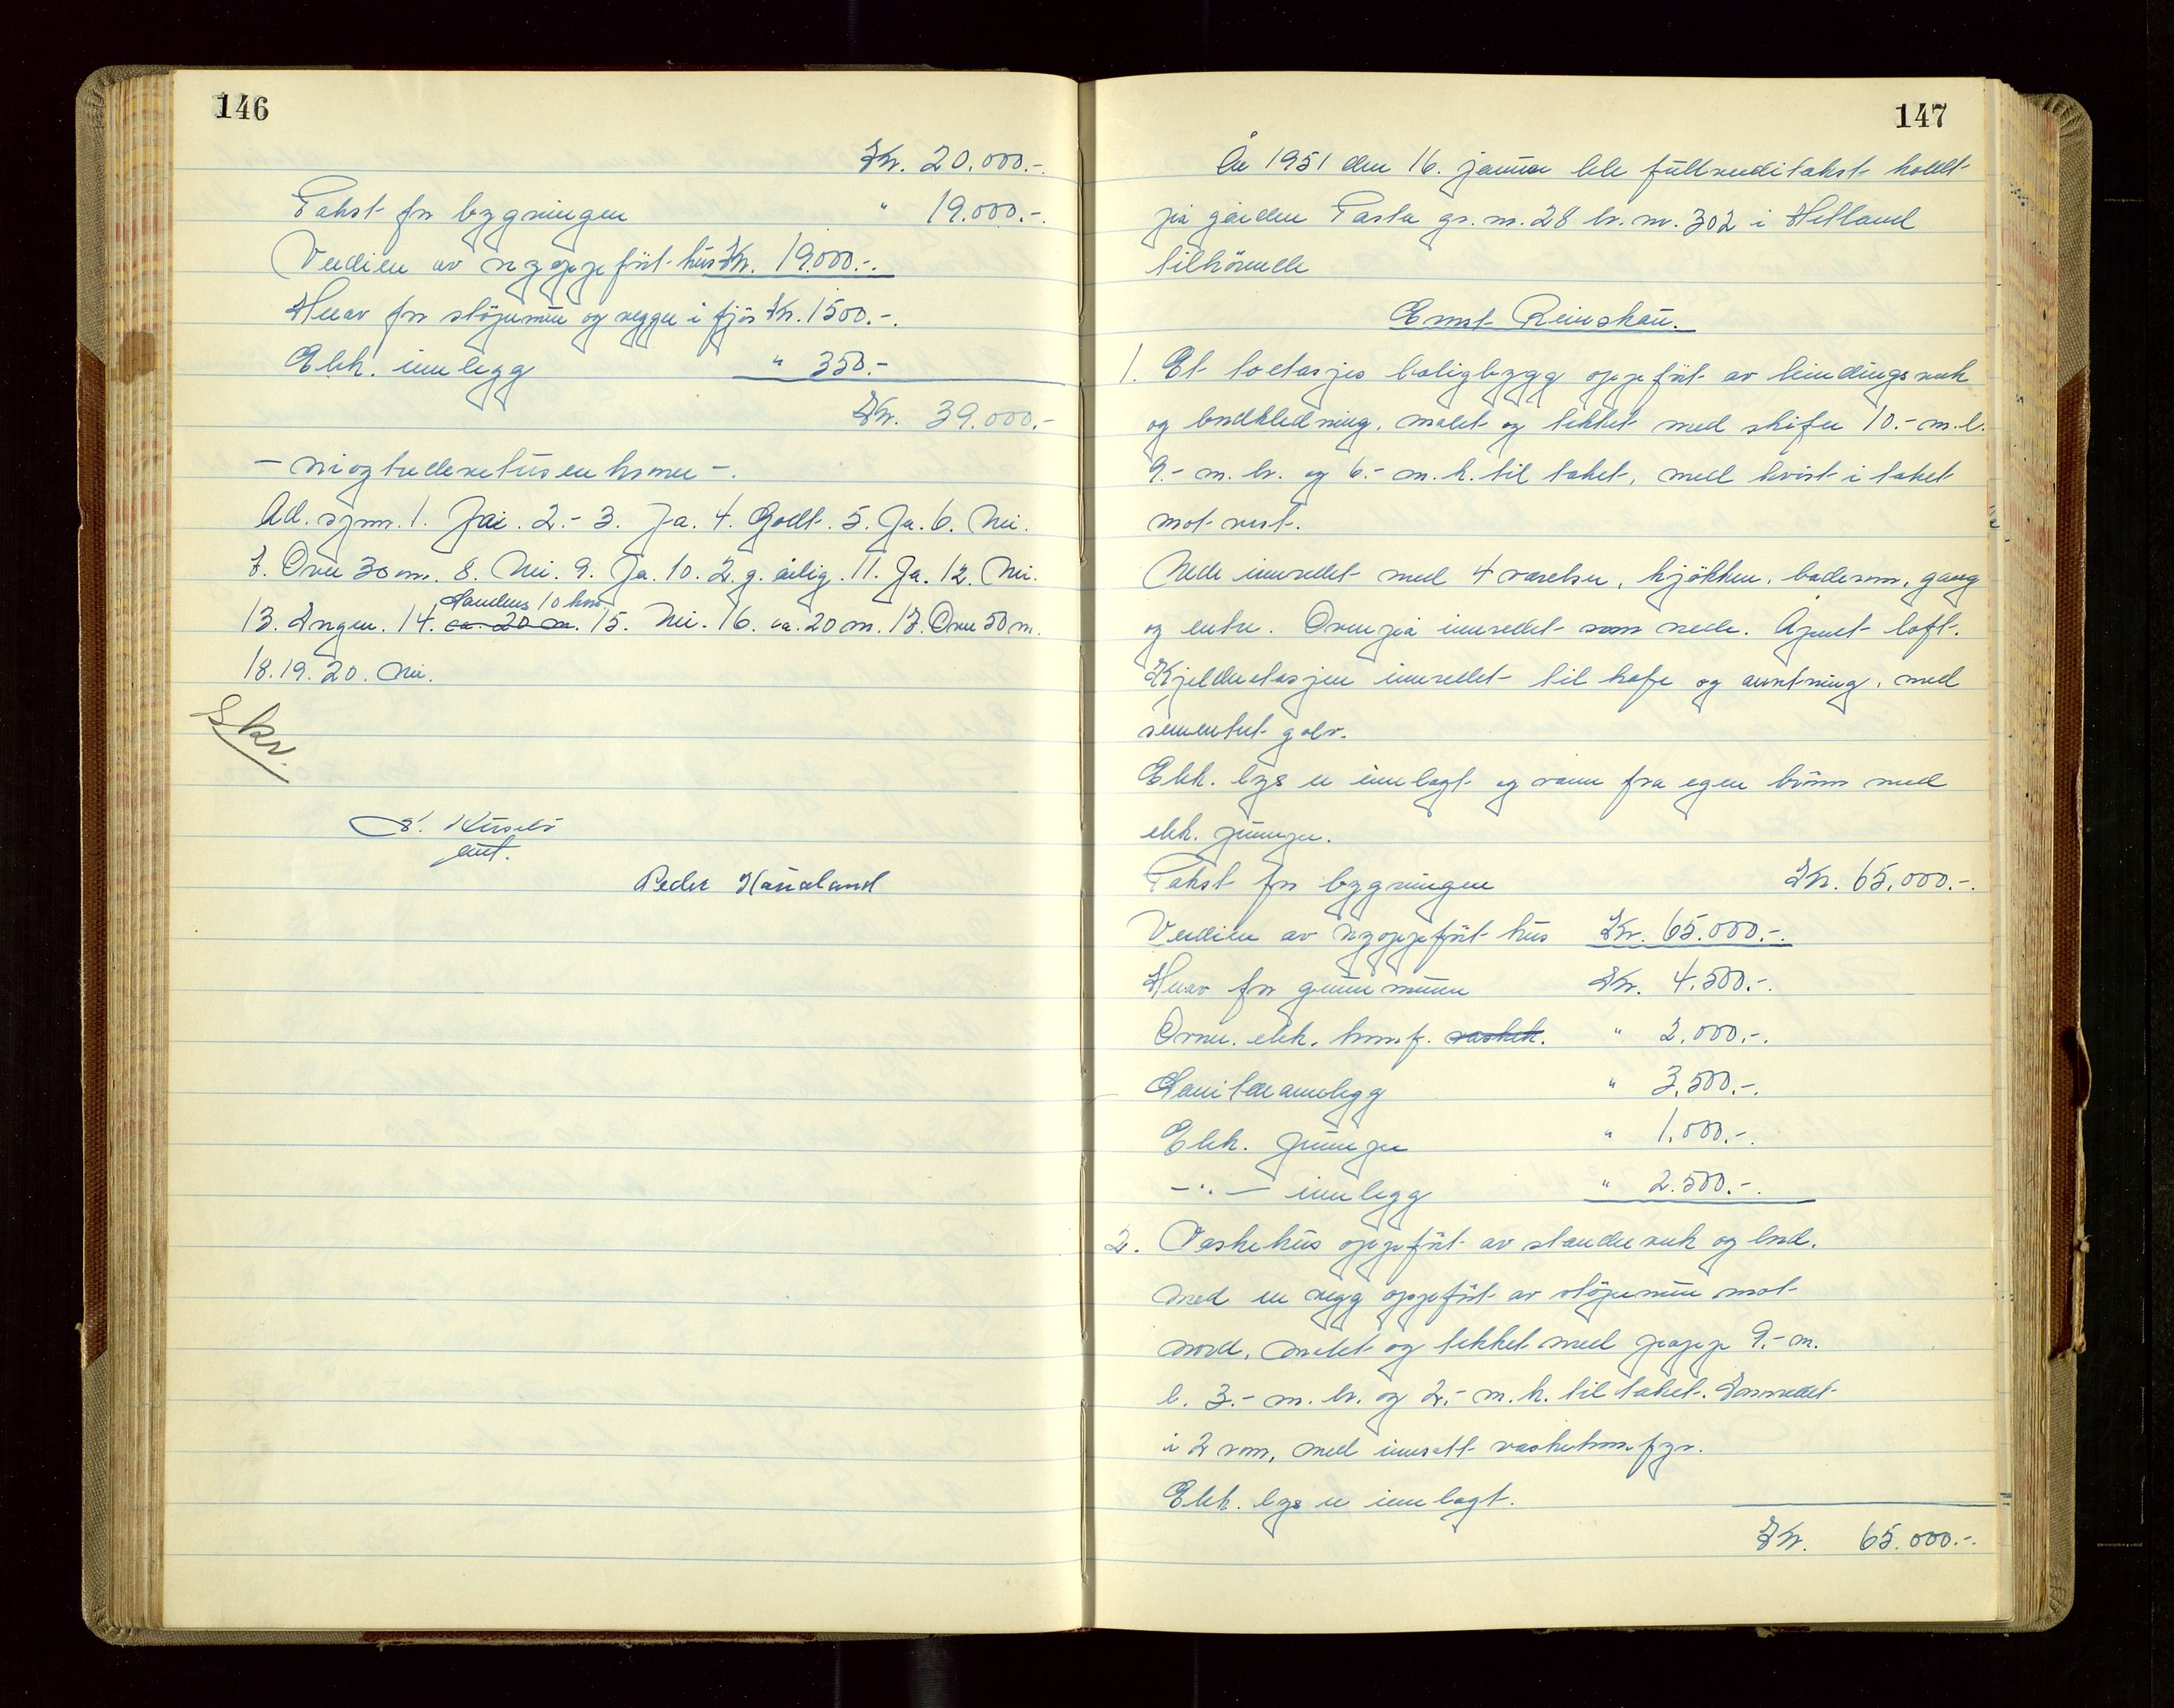 146
Kr. 20.000.-
Takst for bygningen " 19.000.-
Verdien av nyoppført hus Kr. 19.000.-
Herav for støpemur og vegger i fjøs Kr. 1500.-
Elek. innlegg " 350.-
Kr. 39.000.-
- niogtredevetusen kroner -.
Ad. spm. 1. Jai. 2. - 3. Ja. 4. Godt. 5. Ja. 6. Nei.
7. Over 30 m. 8. Nei. 9. Ja. 10. 2 g. årlig. 11. Ja. 12. Nei.
Sandnes 10 km.
13. Ingen. 14. ca. 20 m. 15. Nei. 16. ca. 20 m. 17. Over 50 m.
18. 19. 20. Nei.
Skr.
Peder Haualand
147
År 1951 den 16. januar ble fullverditakst holdt
på gården Tasta gr. nr. 28 br. nr. 302 i Hetland
tilhörende
Ernst Reinskau.
1. Et toetasjes boligbygg oppført av bindingsverk
og bordkledning, malet og tekket med skifer 10.- m. l.
9.- m. br. og 6.- m. h. til taket, med kvist i taket
mot vest.
Nede innredet med 4 værelser, kjökken, baderom, gang
og entre. Ovenpå innredet som nede. Åpent loft.
Kjelleretasjen innredet til kafe og anretning, med
sementert golv.
Elek. lys er innlagt og vann fra egen brönn med
elek. pumpe.
Takst for bygningen Kr. 65.000.-.
Verdien av nyoppført hus Kr. 65.000.-.
Herav for grunnmuren Kr. 4.500.-.
Ovner. elek. komf. vaskek. " 2.000.-.
Sanitæranlegg " 3.500.-.
Elek. pumpe " 1.000.-.
-"- innlegg " 2.500.-.
2. Vaskehus oppført av stenderverk og bord.
med en vegg oppført av støpemur mot
nord, malet og tekket med papp 9.- m.
l. 3.- m. br. og 2.- m. h. til taket. Innredet
i 2 rom, med innsatt vaskekomfyr.
Elek. lys er innlagt.
Kr. 65.000.-.